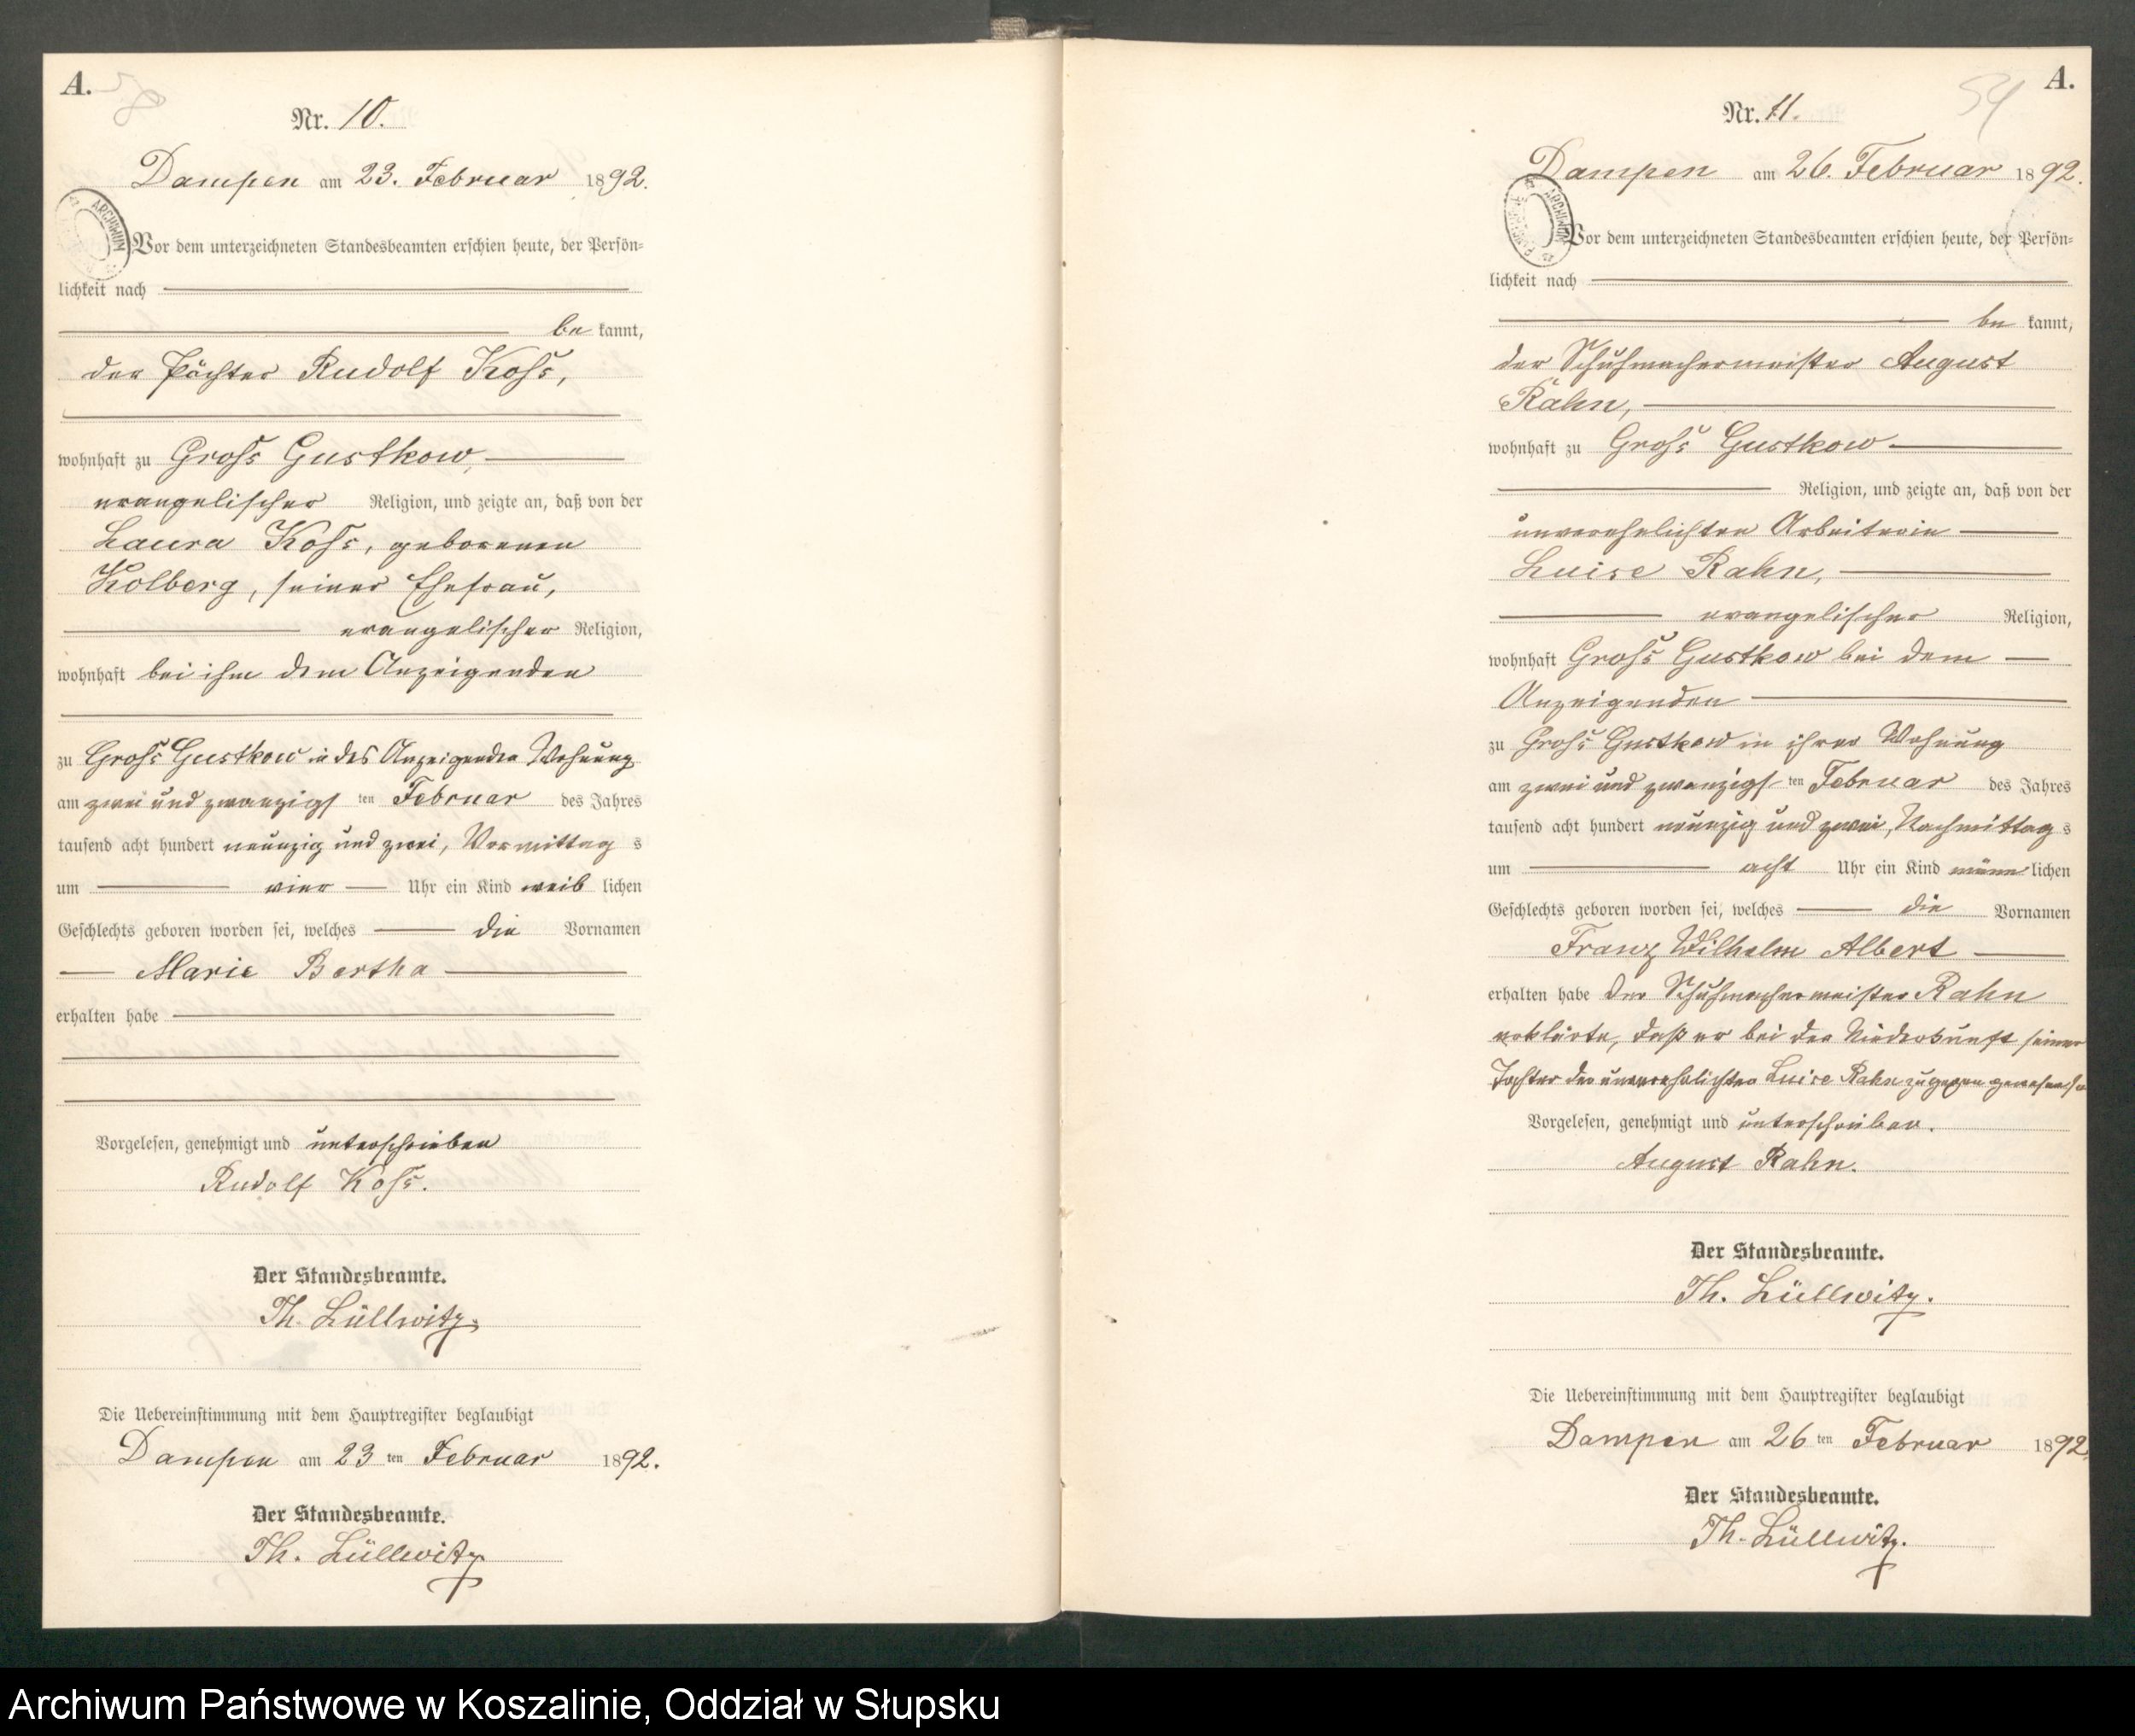 A.
58
Nr. 10.
Dampen am 23. Februar 1892.
ARCHIWUM
Vor dem unterzeichneten Standesbeamten erschien heute, der Persön=
lichkeit nach
be kannt,
der Pächter Rudolf Koß,
wohnhaft zu Groß Gustkow,
evangelischer Religion, und zeigte an, daß von der
Laura Koß, geborenen
Kolberg, seiner Ehefrau,
evangelischer Religion,
wohnhaft bei ihm dem Anzeigenden
zu Groß Gustkow in des Anzeigenden Wohnung
am zwei und zwanzigs ten Februar des Jahres
tausend acht hundert neunzig und zwei, Vormittag s
um vier Uhr ein Kind weib lichen
Geschlechts geboren worden sei, welches die Vornamen
Marie Bertha
erhalten habe
Vorgelesen, genehmigt und unterschrieben
Rudolf Koß.
Der Standesbeamte.
Th. Lüllwitz.
Die Uebereinstimmung mit dem Hauptregister beglaubigt
Dampen am 23 ten Februar 1892.
Der Standesbeamte.
Th. Lüllwitz.
A.
Nr. 11.
Dampen am 26. Februar 1892.
ARCHIWUM
Vor dem unterzeichneten Standesbeamten erschien heute, der Persön=
lichkeit nach
be kannt,
der Schuhmachermeister August
Rahn,
wohnhaft zu Groß Gustkow
Religion, und zeigte an, daß von der
unverehelichten Arbeiterin
Luise Rahn,
evangelischer Religion,
wohnhaft Groß Gustkow bei dem
Anzeigenden
zu Groß Gustkow in ihrer Wohnung
am zwei und zwanzigs ten Februar des Jahres
tausend acht hundert neunzig und zwei, Nachmittag s
um acht Uhr ein Kind männ lichen
Geschlechts geboren worden sei, welches die Vornamen
Franz Wilhelm Albert
erhalten habe Der Schuhmachermeister Rahn
erklärte, daß er bei der Niederkunft seiner
Tochter der unverehelichten Luise Rahn zugegen gewesen sei
Vorgelesen, genehmigt und unterschrieben.
August Rahn.
Der Standesbeamte.
Th. Lüllwitz.
Die Uebereinstimmung mit dem Hauptregister beglaubigt
Dampen am 26 ten Februar 1892.
Der Standesbeamte.
Th. Lüllwitz.
Archiwum Państwowe w Koszalinie, Oddział w Słupsku